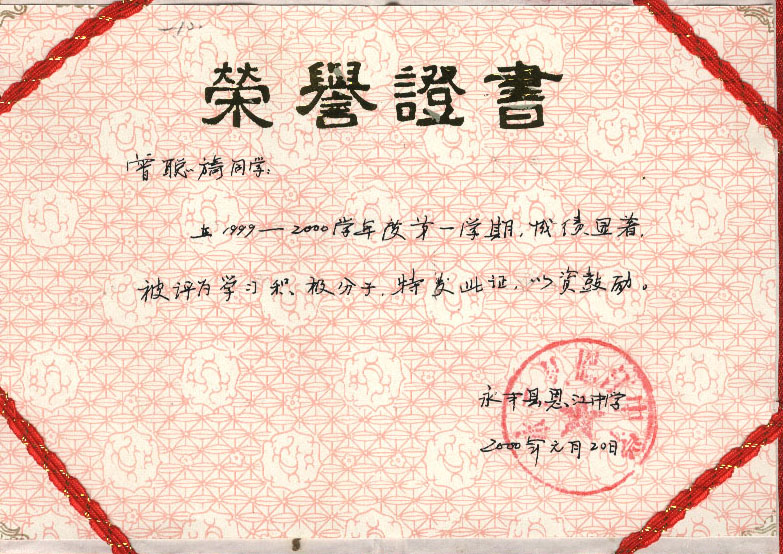 一(2)
榮譽證書
曾聪旖同学:
在1999—2000学年度第一学期,成绩显著,
被评为学习积极分子,特发此证,以资鼓励。
永丰县恩江中学
2000年元月20日